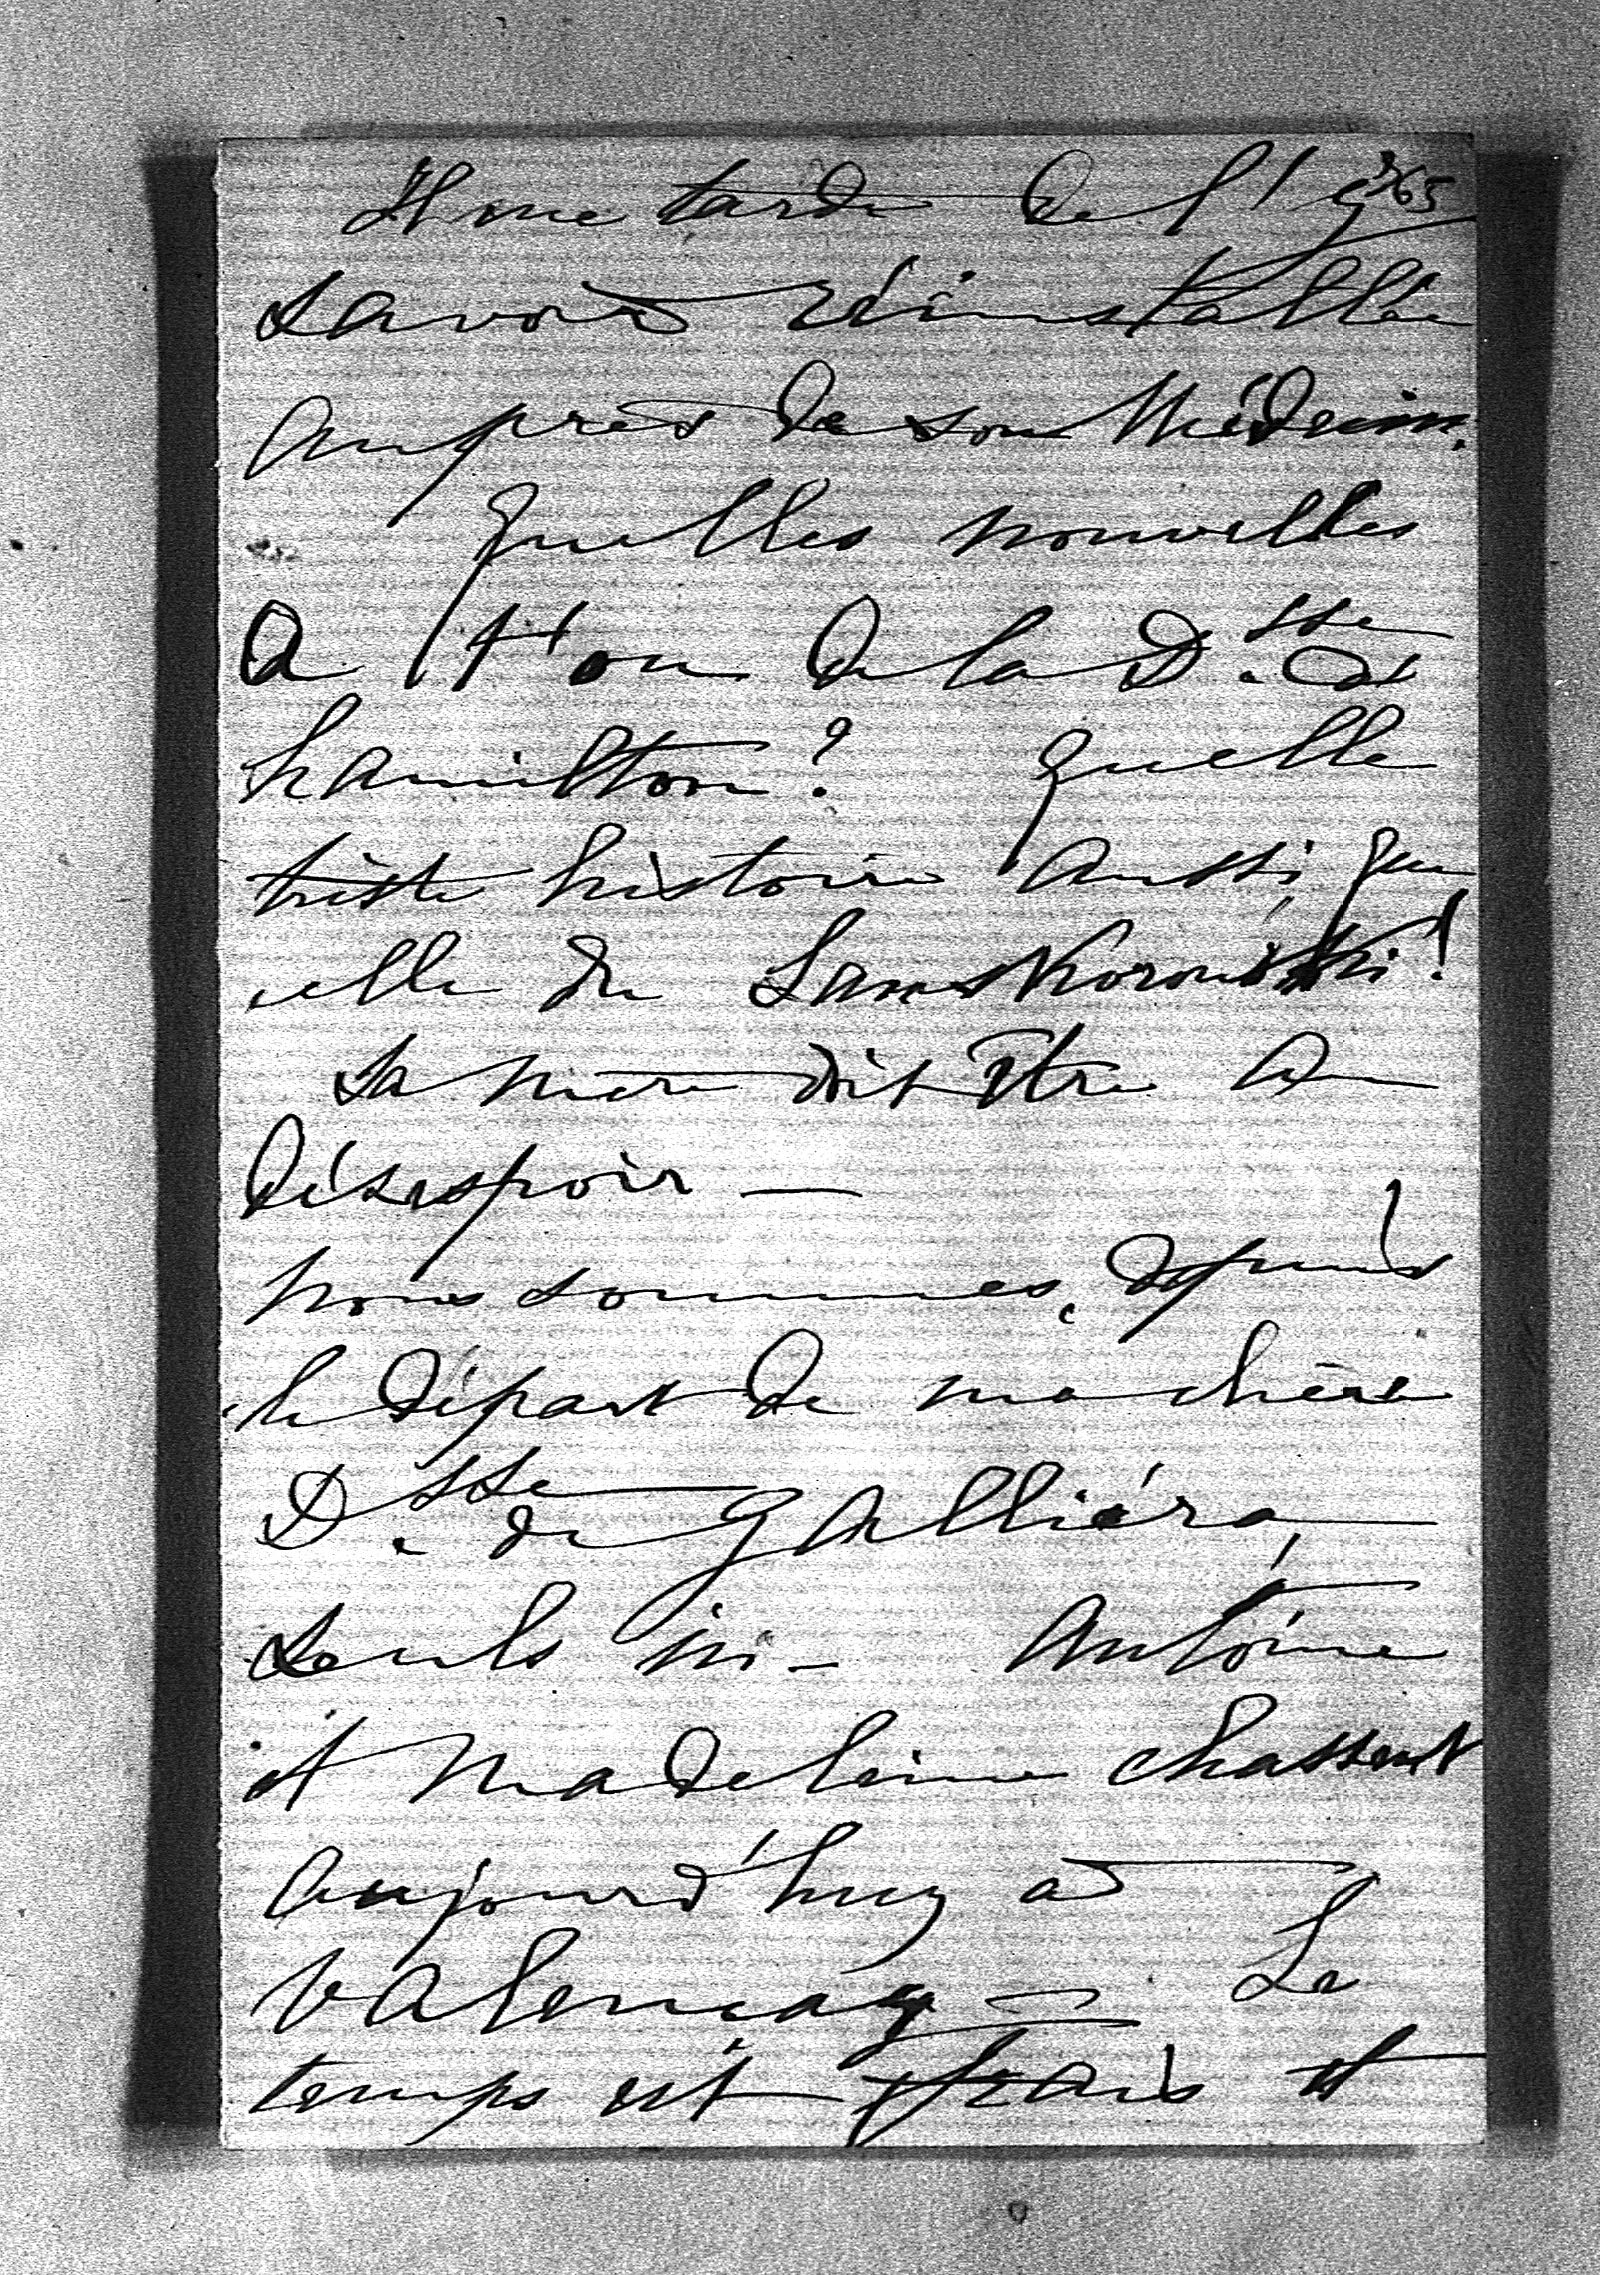 Il me tarde de l'y 365
savoir réinstallée
auprès de son Médecin.
Quelles nouvelles
a t'on de la D.sse de
hamilton? Quelle
triste histoire aussi que
celle du Lanskoronski!
Sa mère doit être au
désespoir —
Nous sommes, depuis
le départ de ma chère
D.sse de Galliéra,
seuls ici — Antoine
et Madeleine chassent
aujourd'huy à
Valençay — Le
temps est frais et